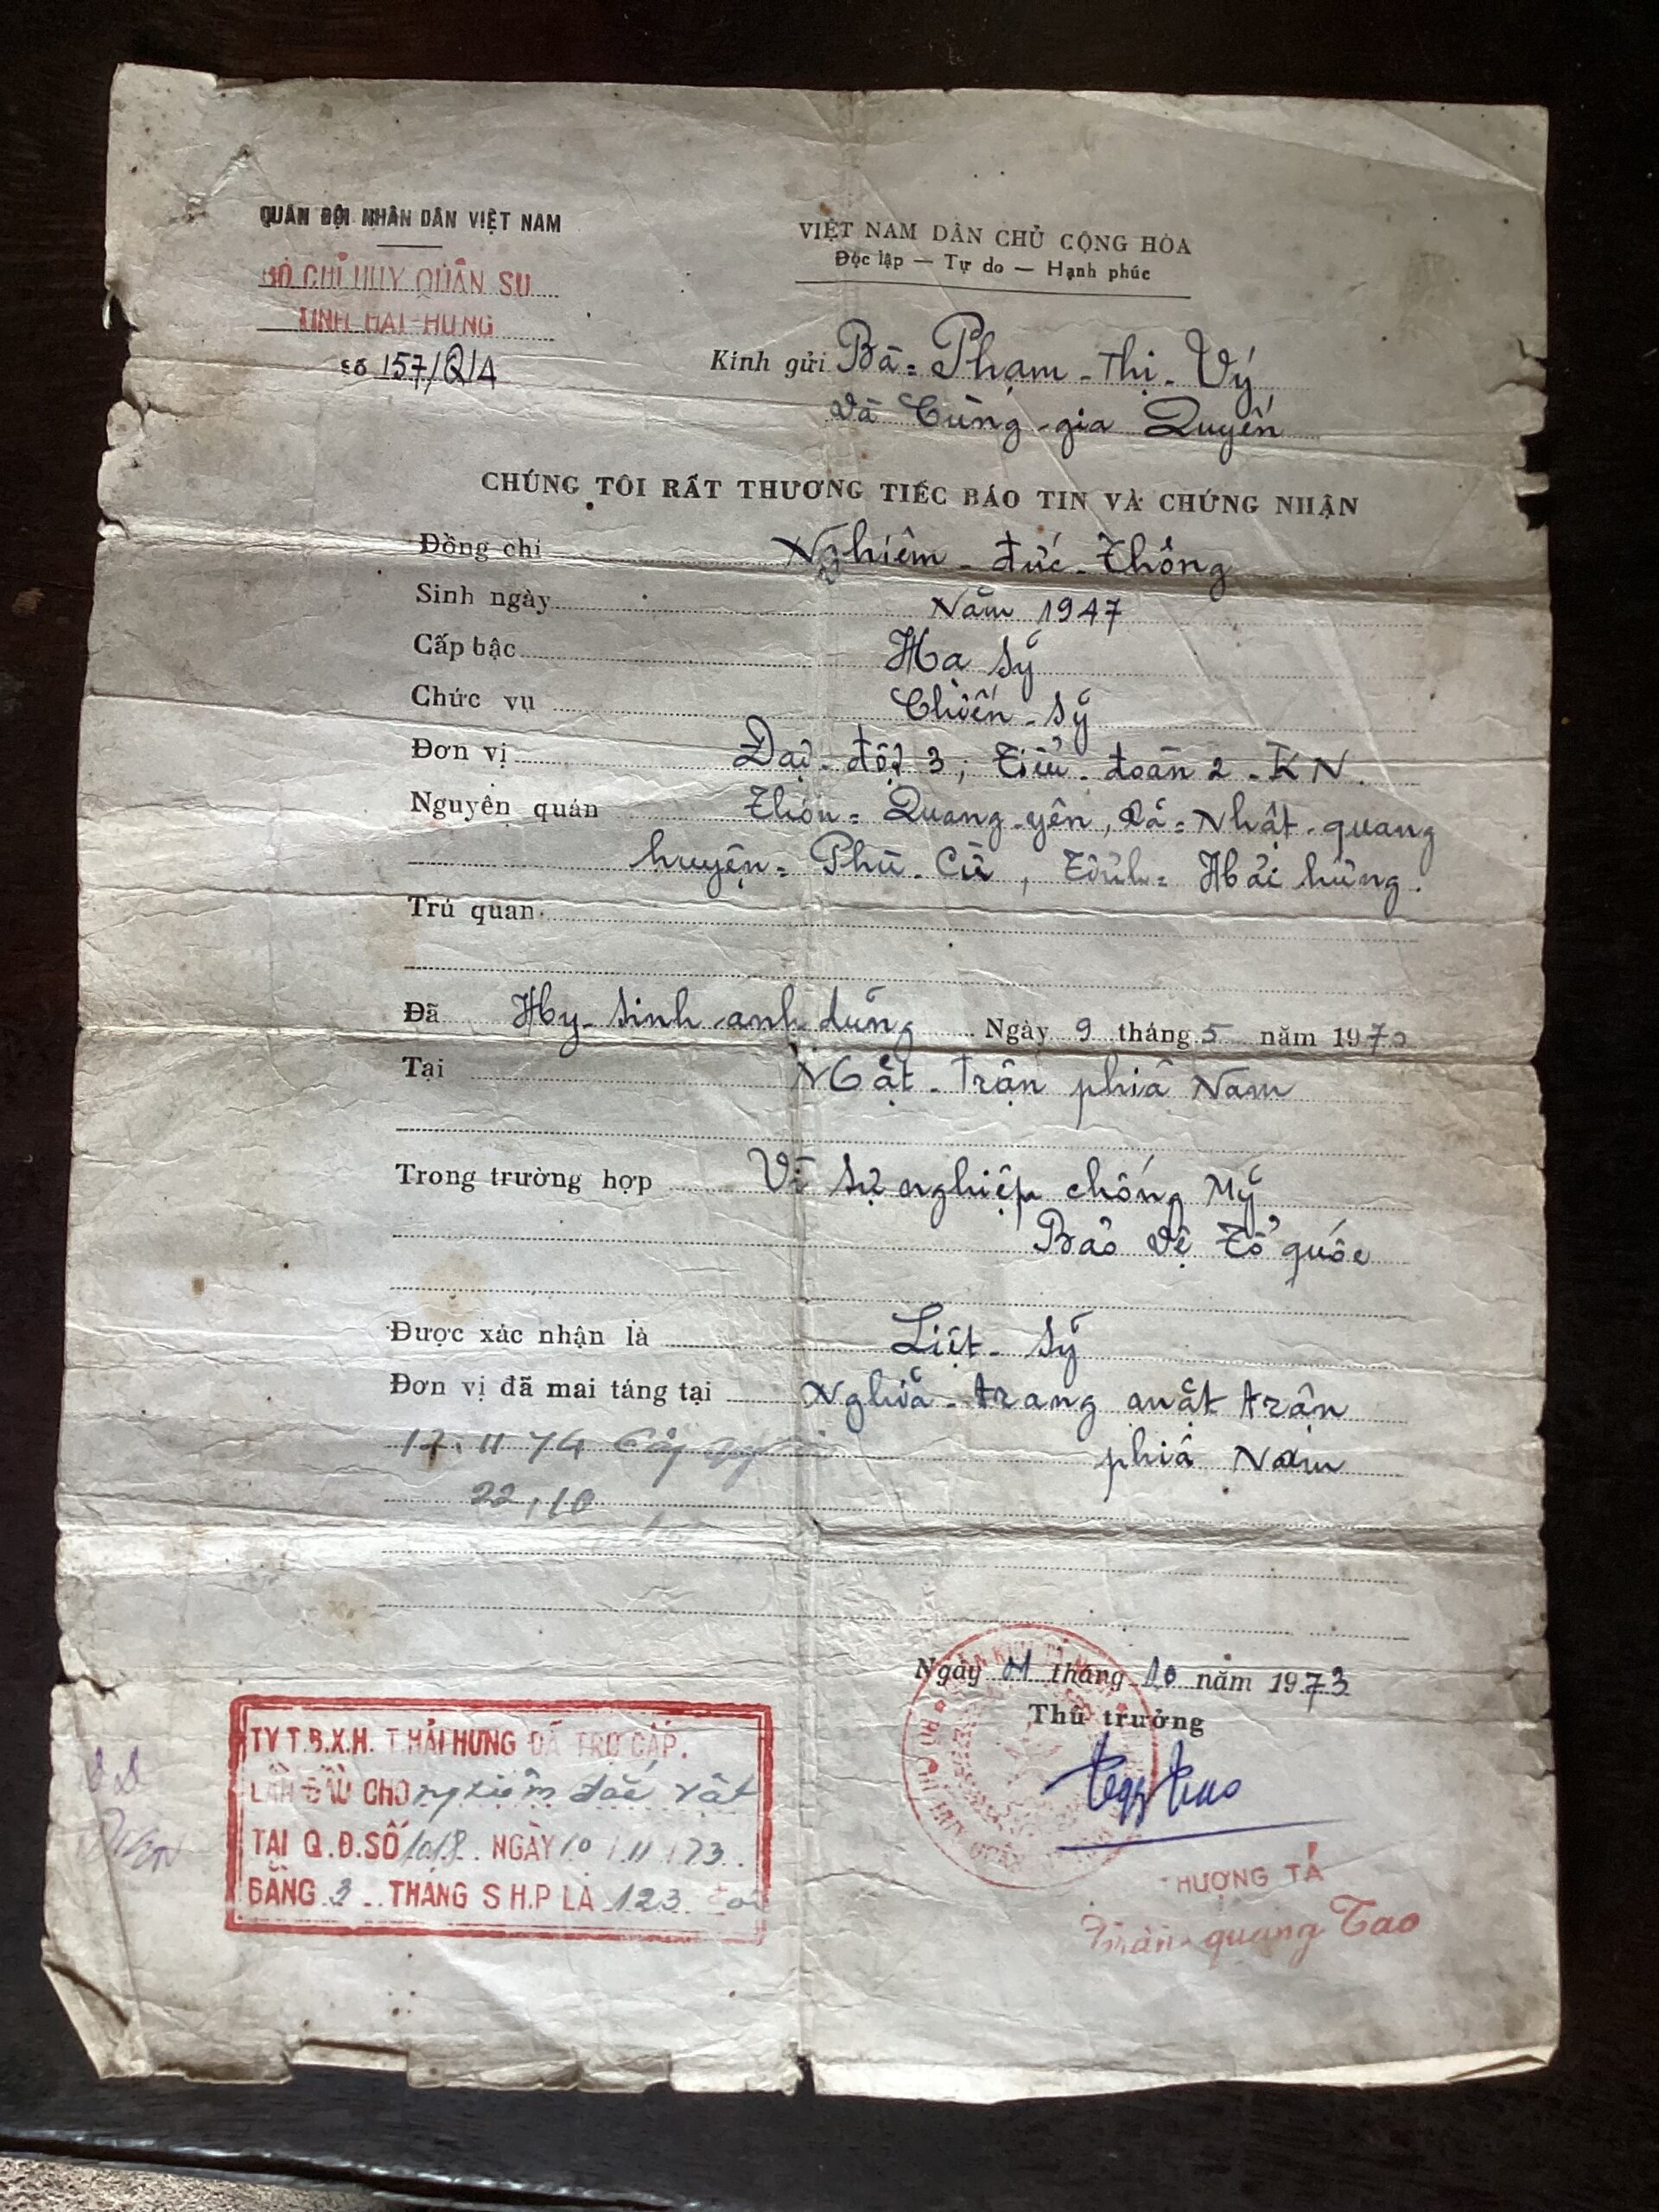 QUÂN ĐỘI NHÂN DÂN VIỆT NAM
BỘ CHỈ HUY QUÂN SỰ
TỈNH HẢI-HƯNG
số 157/QIA
VIỆT NAM DÂN CHỦ CỘNG HÒA
Độc lập — Tự do — Hạnh phúc
Kính gửi Bà = Phạm - Thị - Vý
và Cùng - gia Quyến
CHÚNG TÔI RẤT THƯƠNG TIẾC BÁO TIN VÀ CHỨNG NHẬN
Đồng chí Nghiêm - đức - Thống
Sinh ngày Năm 1947
Cấp bậc Hạ sỹ
Chức vụ Chiến - sỹ
Đơn vị Đại - đội 3, Tiểu - đoàn 2 - KN.
Nguyên quán Thôn = Quang - yên, xã = Nhật - quang
huyện = Phù - Cừ, Tỉnh = Hải hưng.
Trú quán
Đã Hy - sinh - anh dũng Ngày 9 tháng 5 năm 1970
Tại Mặt - Trận phiá Nam
Trong trường hợp Vì sự nghiệp chống Mỹ
Bảo vệ Tổ quốc
Được xác nhận là Liệt - sỹ
Đơn vị đã mai táng tại Nghiã - trang mặt trận
phiá Nam
17.11 74
22,10
Ngày 01 tháng 10 năm 1973
Thủ trưởng
THƯỢNG TÁ
Trần - quang Tao
TY T.B.X.H. T. HẢI HƯNG ĐÃ TRỢ CẤP.
LẦN ĐẦU CHO nghiêm đắc vất
TẠI Q.Đ. SỐ 1018 NGÀY 10 / 11 / 73
BẰNG 3 THÁNG S H.P LÀ 123